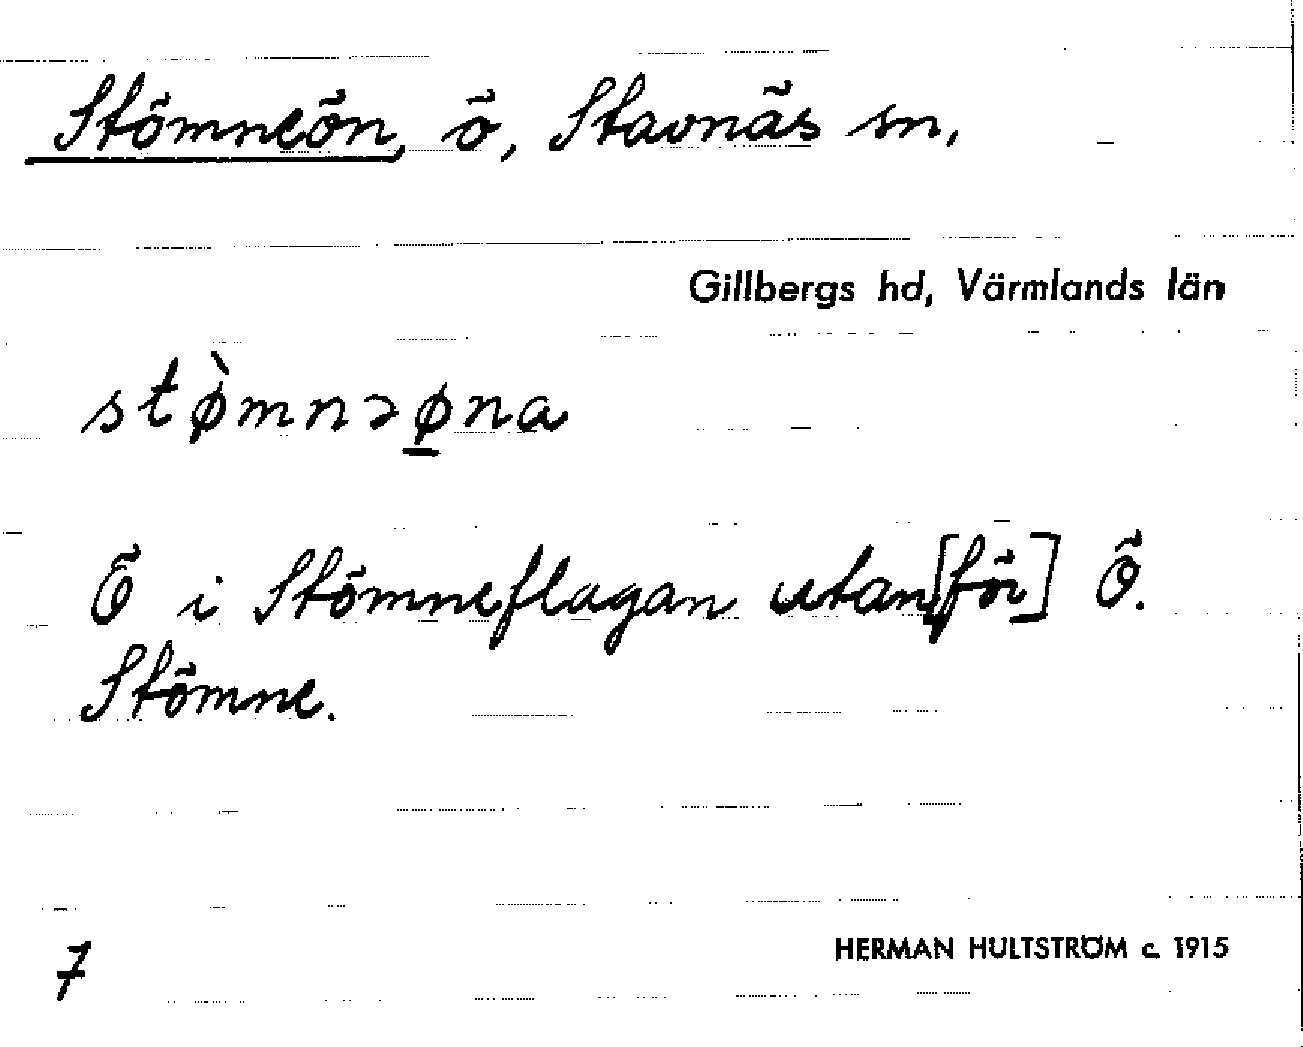 Stömneön, ö, Stavnäs sn,
Gillbergs hd, Värmlands län
stø̀mnəø̱na
Ö i Stömneflagan utan[för] Ö.
Stömne.
7
HERMAN HULTSTRÖM c. 1915